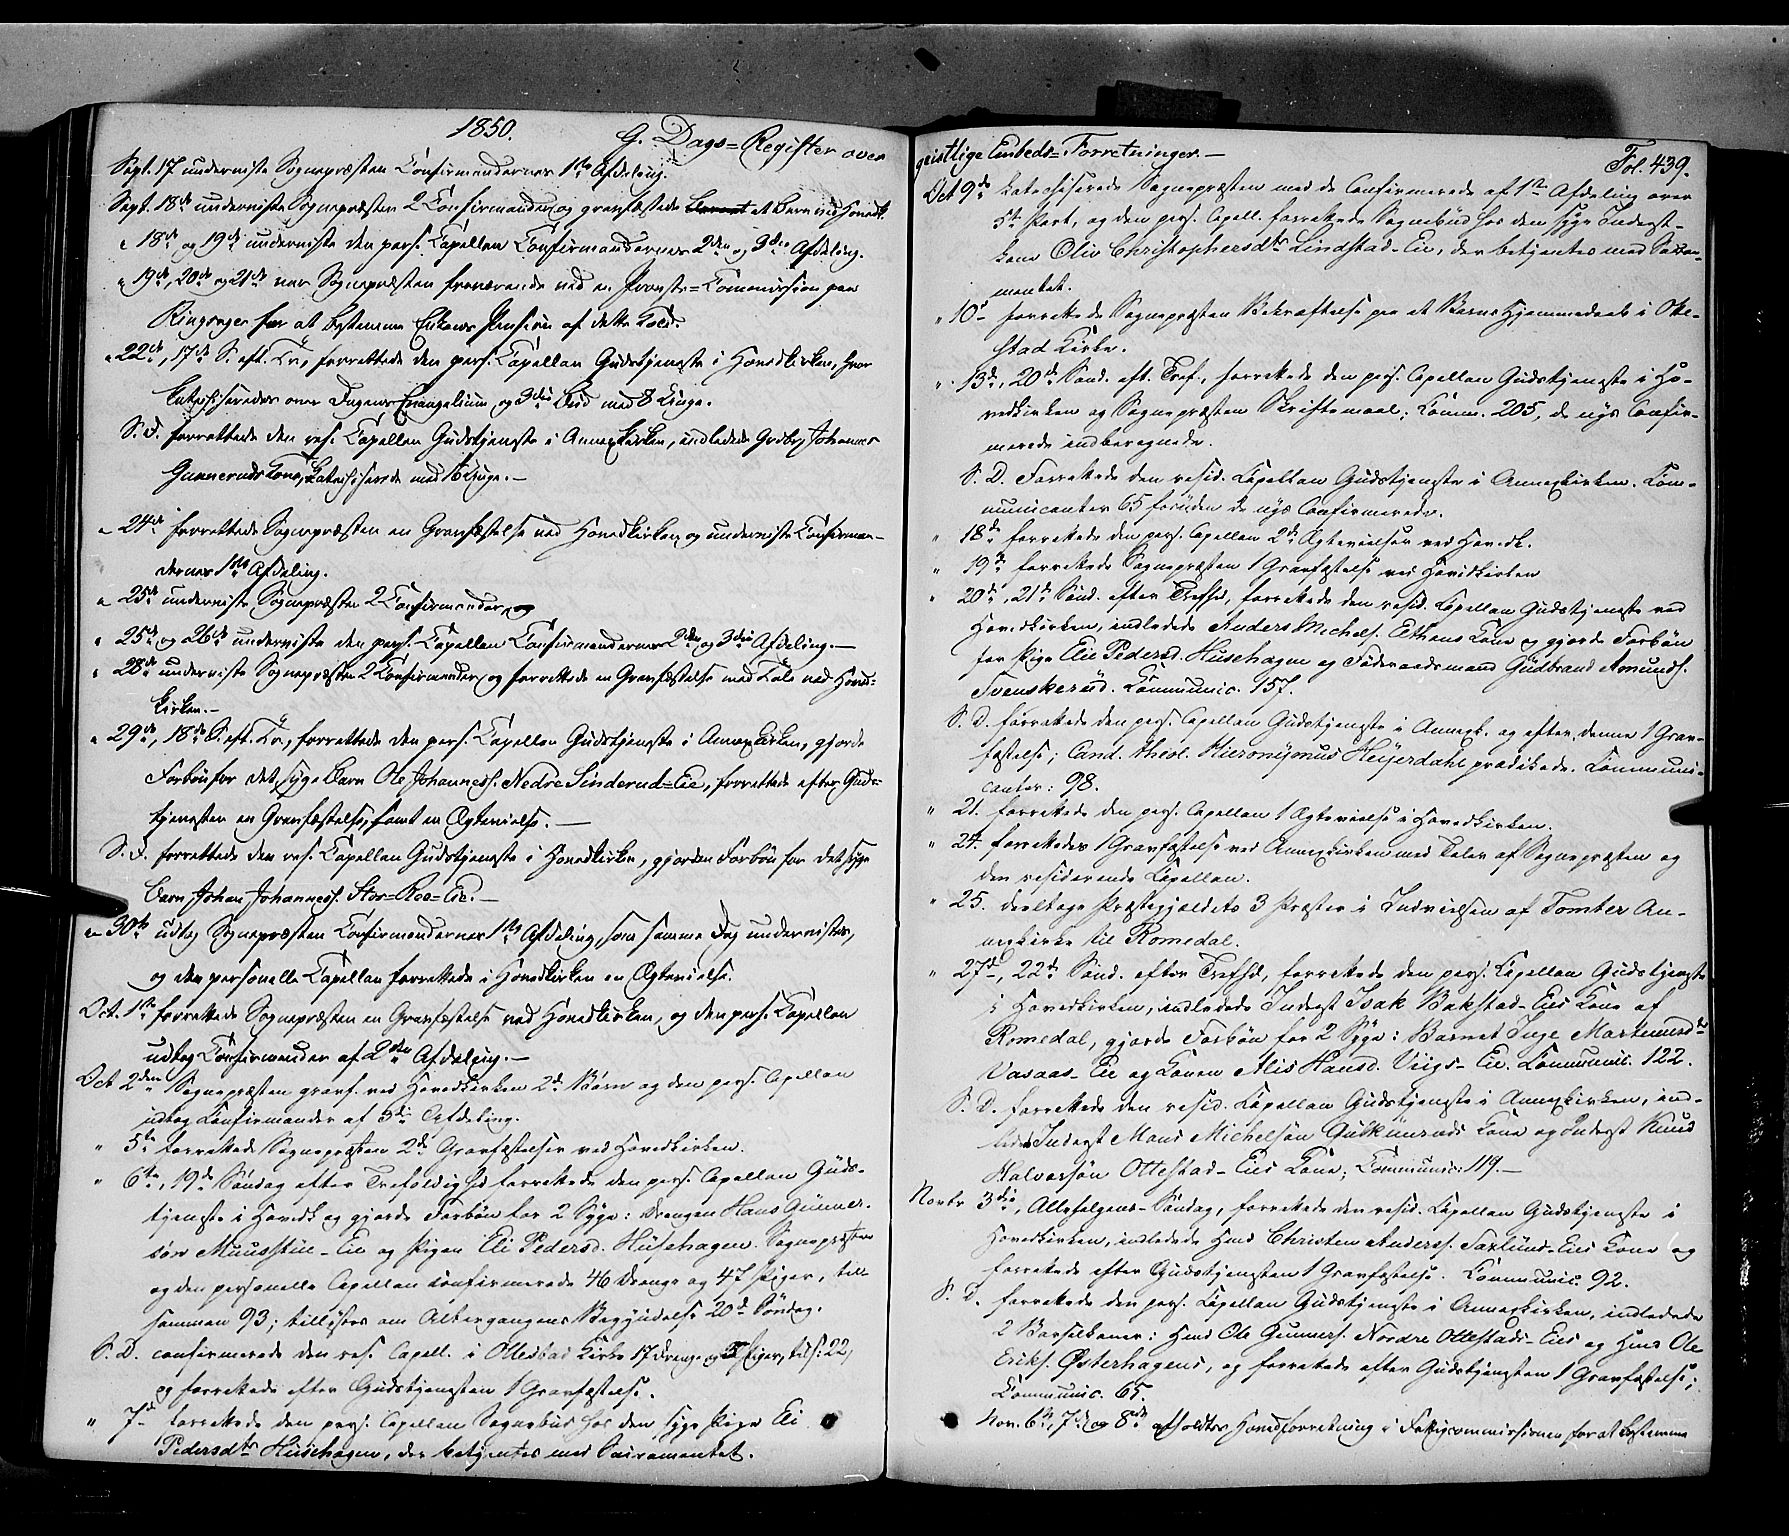 1850.
G. Dags=Register over
Sept. 17 underviste Sognepræsten Confirmandernes 1ste Afdeling.
Sept. 18de underviste Sognepræsten 2 Confirmander og gravfæstede et Barn ved Hovedk.
" 18de og 19de underviste den pers. Capellan Confirmandernes 2den og 3die Afdeling.
" 19de, 20de og 21de var Sognepræsten fraværende ved en Provste=Commission paa
Ringsager for at bestemme Enkens Pension af dette Kald.
" 22de, 17de S. eft. Tr., forrettede den pers. Capellan Gudstjeneste i Hovedkirken, hvor
katechiseredes over Dagens Evangelium og 3die Bud med 8 Unge.
S. D. forrettede den res. Capellan Gudstjeneste i Annexkirken, indledede Gdbr. Johannes
Gunneruds Kone, katechiserede med 16 Unge.-
" 24de forrettede Sognepræsten en Gravfæstelse ved Hovedkirken og underviste Confirman-
dernes 1ste Afdeling.
" 25de underviste Sognepræsten 2 Confirmander, og
" 25de og 26de underviste den pers. Capellan Confirmandernes 2den og 3die Afdeling.-
" 28de underviste Sognepræsten 2 Confirmander og forrettede en Gravfæstelse med Tale ved Hoved-
kirken.-
" 29de, 18de S. eft. Tr., forrettede den pers. Capellan Gudstjeneste i Annexkirken, gjorde
Forbøn for det syge Barn Ole Johanness. Nedre Sinderud=Eie, forrettede efter Guds-
tjenesten en Gravfæstelse, samt en Ægtevielse.-
S. D. forrettede den res. Capellan Gudstjeneste i Hovedkirken, gjorde Forbøn for det syge
Barn Johan Johanness. Stor=Roe=Eie.-
" 30te udtog Sognepræsten Confirmandernes 1ste Afdeling, som samme Dag undervistes,
og den personelle Capellan forrettede i Hovedkirken en Ægtevielse.
Oct. 1ste forrettede Sognepræsten en Gravfæstelse ved Hovedkirken, og den pers. Capellan
udtog Confirmander af 2den Afdeling.-
Oct 2den Sognepræsten gravf. ved Hovedkirken 2de Børn og den pers. Capellan
udtog Confirmander af 3die Afdeling.
" 5te forrettede Sognepræsten 2de Gravfæstelser ved Hovedkirken.
" 6te, 19de Søndag efter Trefoldighd forrettede den pers. Capellan Guds-
tjeneste i Hovedk og gjorde Forbøn for 2 Syge: Drengen Hans Gunner-
søn Muusstue-Eie og Pigen Eli Pedersd. Husehagen. Sognepræsten
og den personelle Capellan confirmerede 46 Drenge og 47 Piger, til-
sammen 93; tillystes om Altergangens Begyndelse 20de Søndag.
S. D. confirmerede den res. Capell. i Ottestad Kirke 17 Drenge og 5 Piger, tils: 22,
og forrettede efter Gudstjenesten 1 Gravfæstelse.
" 7de forrettede den pers. Capellan Sognebud hos den syge Pige Eli
Pedersdtr Husehagen, der betjentes med Sacramentet.
geistlige Embeds=Forretninger.-
Fol. 439.
Oct 9de katechiserede Sognepræsten med de Confirmerede af 1ste Afdeling over
5te Part, og den pers. Capell. forrettede Sognebud hos den syge Inderst-
kone Olia Christophersdtr Lindstad-Eie, der betjentes med Sacra-
mentet.
" 10de forrettede Sognepræsten Bekræftelse paa et Barns Hjemmedaab i Otte-
stad Kirke.
" 13de, 20de Sønd. eft. Tref., forrettede den pers. Capellan Gudstjeneste i Ho-
vedkirken og Sognepræsten Skriftemaal; Comm. 205, de nys Confir-
merede indberegnede.
S. D. Forrettede den resid. Capellan Gudstjeneste i Annexkirken. Com-
municanter 65 foruden de nys Confirmerede.
" 18de forrettede den pers. Capellan 2de Ægtevielser ved Hovedk.
" 19de forrettede Sognepræsten 1 Gravfæstelse ved Hovedkirken
" 20de, 21de Sønd. efter Trefhd, forrettede den resid. Capellan Gudstjeneste ved
Hovedkirken, indledede Anders Michels. Eithens Kone og gjorde Forbøn
for Pige Elie Pedersd. Husehagen og Føderaadsmand Gudbrand Amunds.
Svenskerud. Communic. 157.
S. D. forrettede den pers. Capellan Gudstjeneste i Annexk. og efter denne 1 Grav-
fæstelse; Cand. theol. Hieronymus Heyerdahl prædikede. Communi-
canter: 98.
" 21. forrettede den pers. Capellan 1 Ægtevielse i Hovedkirken.
" 24. forrettedes 1 Gravfæstelse ved Annexkirken med Taler af Sognepræsten og
den residerende Capellan.
" 25. deeltoge Præstegjeldets 3 Præster i Indvielsen af Tomter An-
nexkirke til Romedal.
" 27de, 22de Sønd. efter Trefhd, forrettede den pers. Capellan Gudstjeneste
i Hovedkirken, indledede Inderst Isak Bakstad-Eies Kone af
Romedal, gjorde Forbøn for 2 Syge: Barnet Inge Marthinusdtr
Vasaas-Eie og Konen Alis Hansd. Viigs-Eie. Communic. 122.
S. D. forrettede den resid. Capellan Gudstjeneste i Annexkirken, ind-
ledede Inderst Mons Michelsøn Gulkuruds Kone og Inderst Knud
Halvorsøn Ottestad-Eies Kone; Communic: 119.-
Novbr 3die, Allehelgens-Søndag, forrettede den resid. Capellan Gudstjeneste i
Hovedkirken, indledede Hmd Christen Anderss. Saxlund-Eies Kone og
forrettede efter Gudstjenesten 1 Gravfæstelse. Communic. 92.
S. D. forrettede den pers. Capellan Gudstjeneste i Annexkirken, indledede
2 Barselkoner: Hmd Ole Gunners. Nordre Ottestads-Eies og Hmd Ole
Eriks. Østerhagens, og forrettede efter Gudstjenesten 1 Gravfæstelse;
Communic. 65.
Nov. 6te, 7de og 8de afholdtes Hovedforretning i Fattigcommissionen for at bestemme